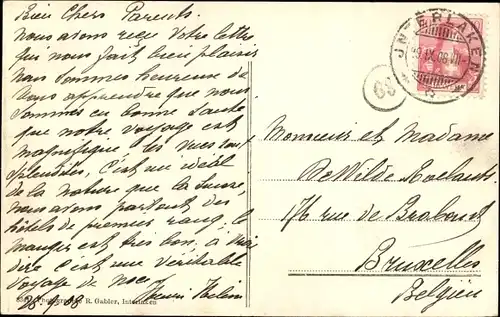 Bien Chers Parents.
Nous avons reçu Votre lettre
qui nous fait bien plaisir
Nous sommes heureuse de
Vous apprendre que nous
sommes en bonne Santé
que notre voyage est
magnifique les vues sont
splendides, C'est un idéal
de la nature que la Suisse,
nous avons partout des
hôtels de premier rang, le
manger est très bon, à vrai
dire c'est un véritable
voyage de noce
28.9.08 Henri Helène
Photographie R. Gabler, Interlaken
INTERLAKEN
IX.08.VIII
68
Monsieur et Madame
De Wilde Roelants
176 rue de Brabant
Bruxelles
Belgien